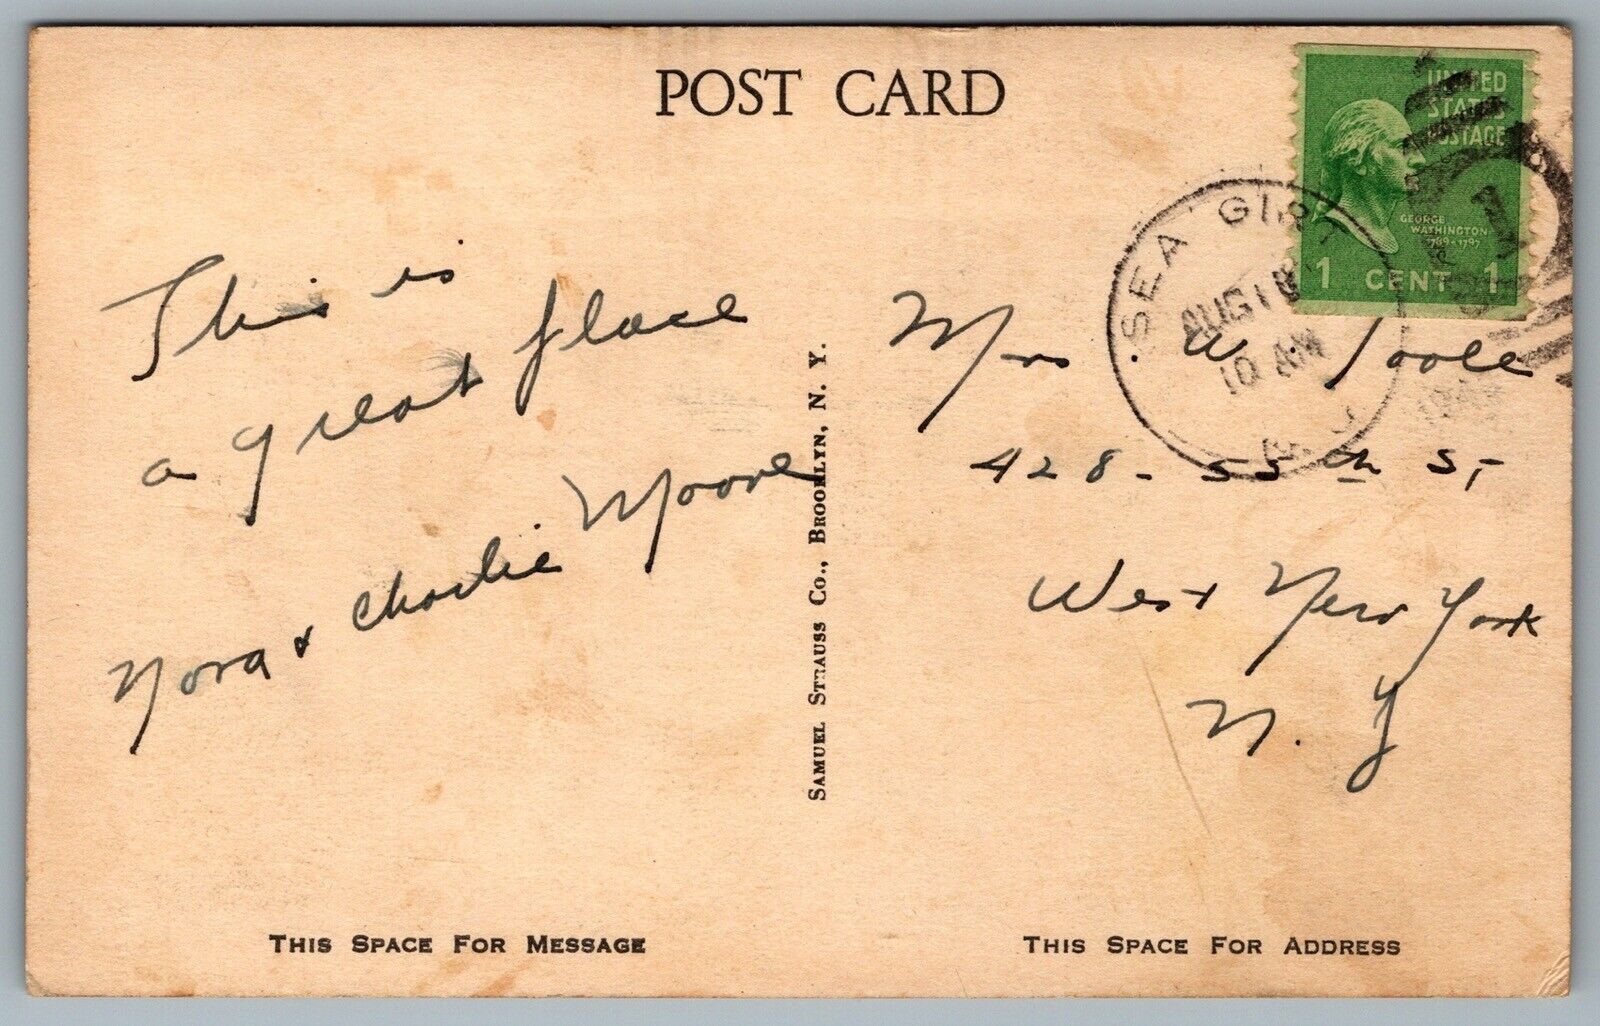 POST CARD
UNITED
STATES
POSTAGE
GEORGE
WASHINGTON
1789-1797
1 CENT 1
SEA GIRT
AUG 18
10 AM
N. J.
This is
a great place
Nora & Charlie Moore
SAMUEL STRAUSS CO., BROOKLYN, N. Y.
Mrs. W. Toole
428 - 55th St
West New York
N. J
THIS SPACE FOR MESSAGE
THIS SPACE FOR ADDRESS